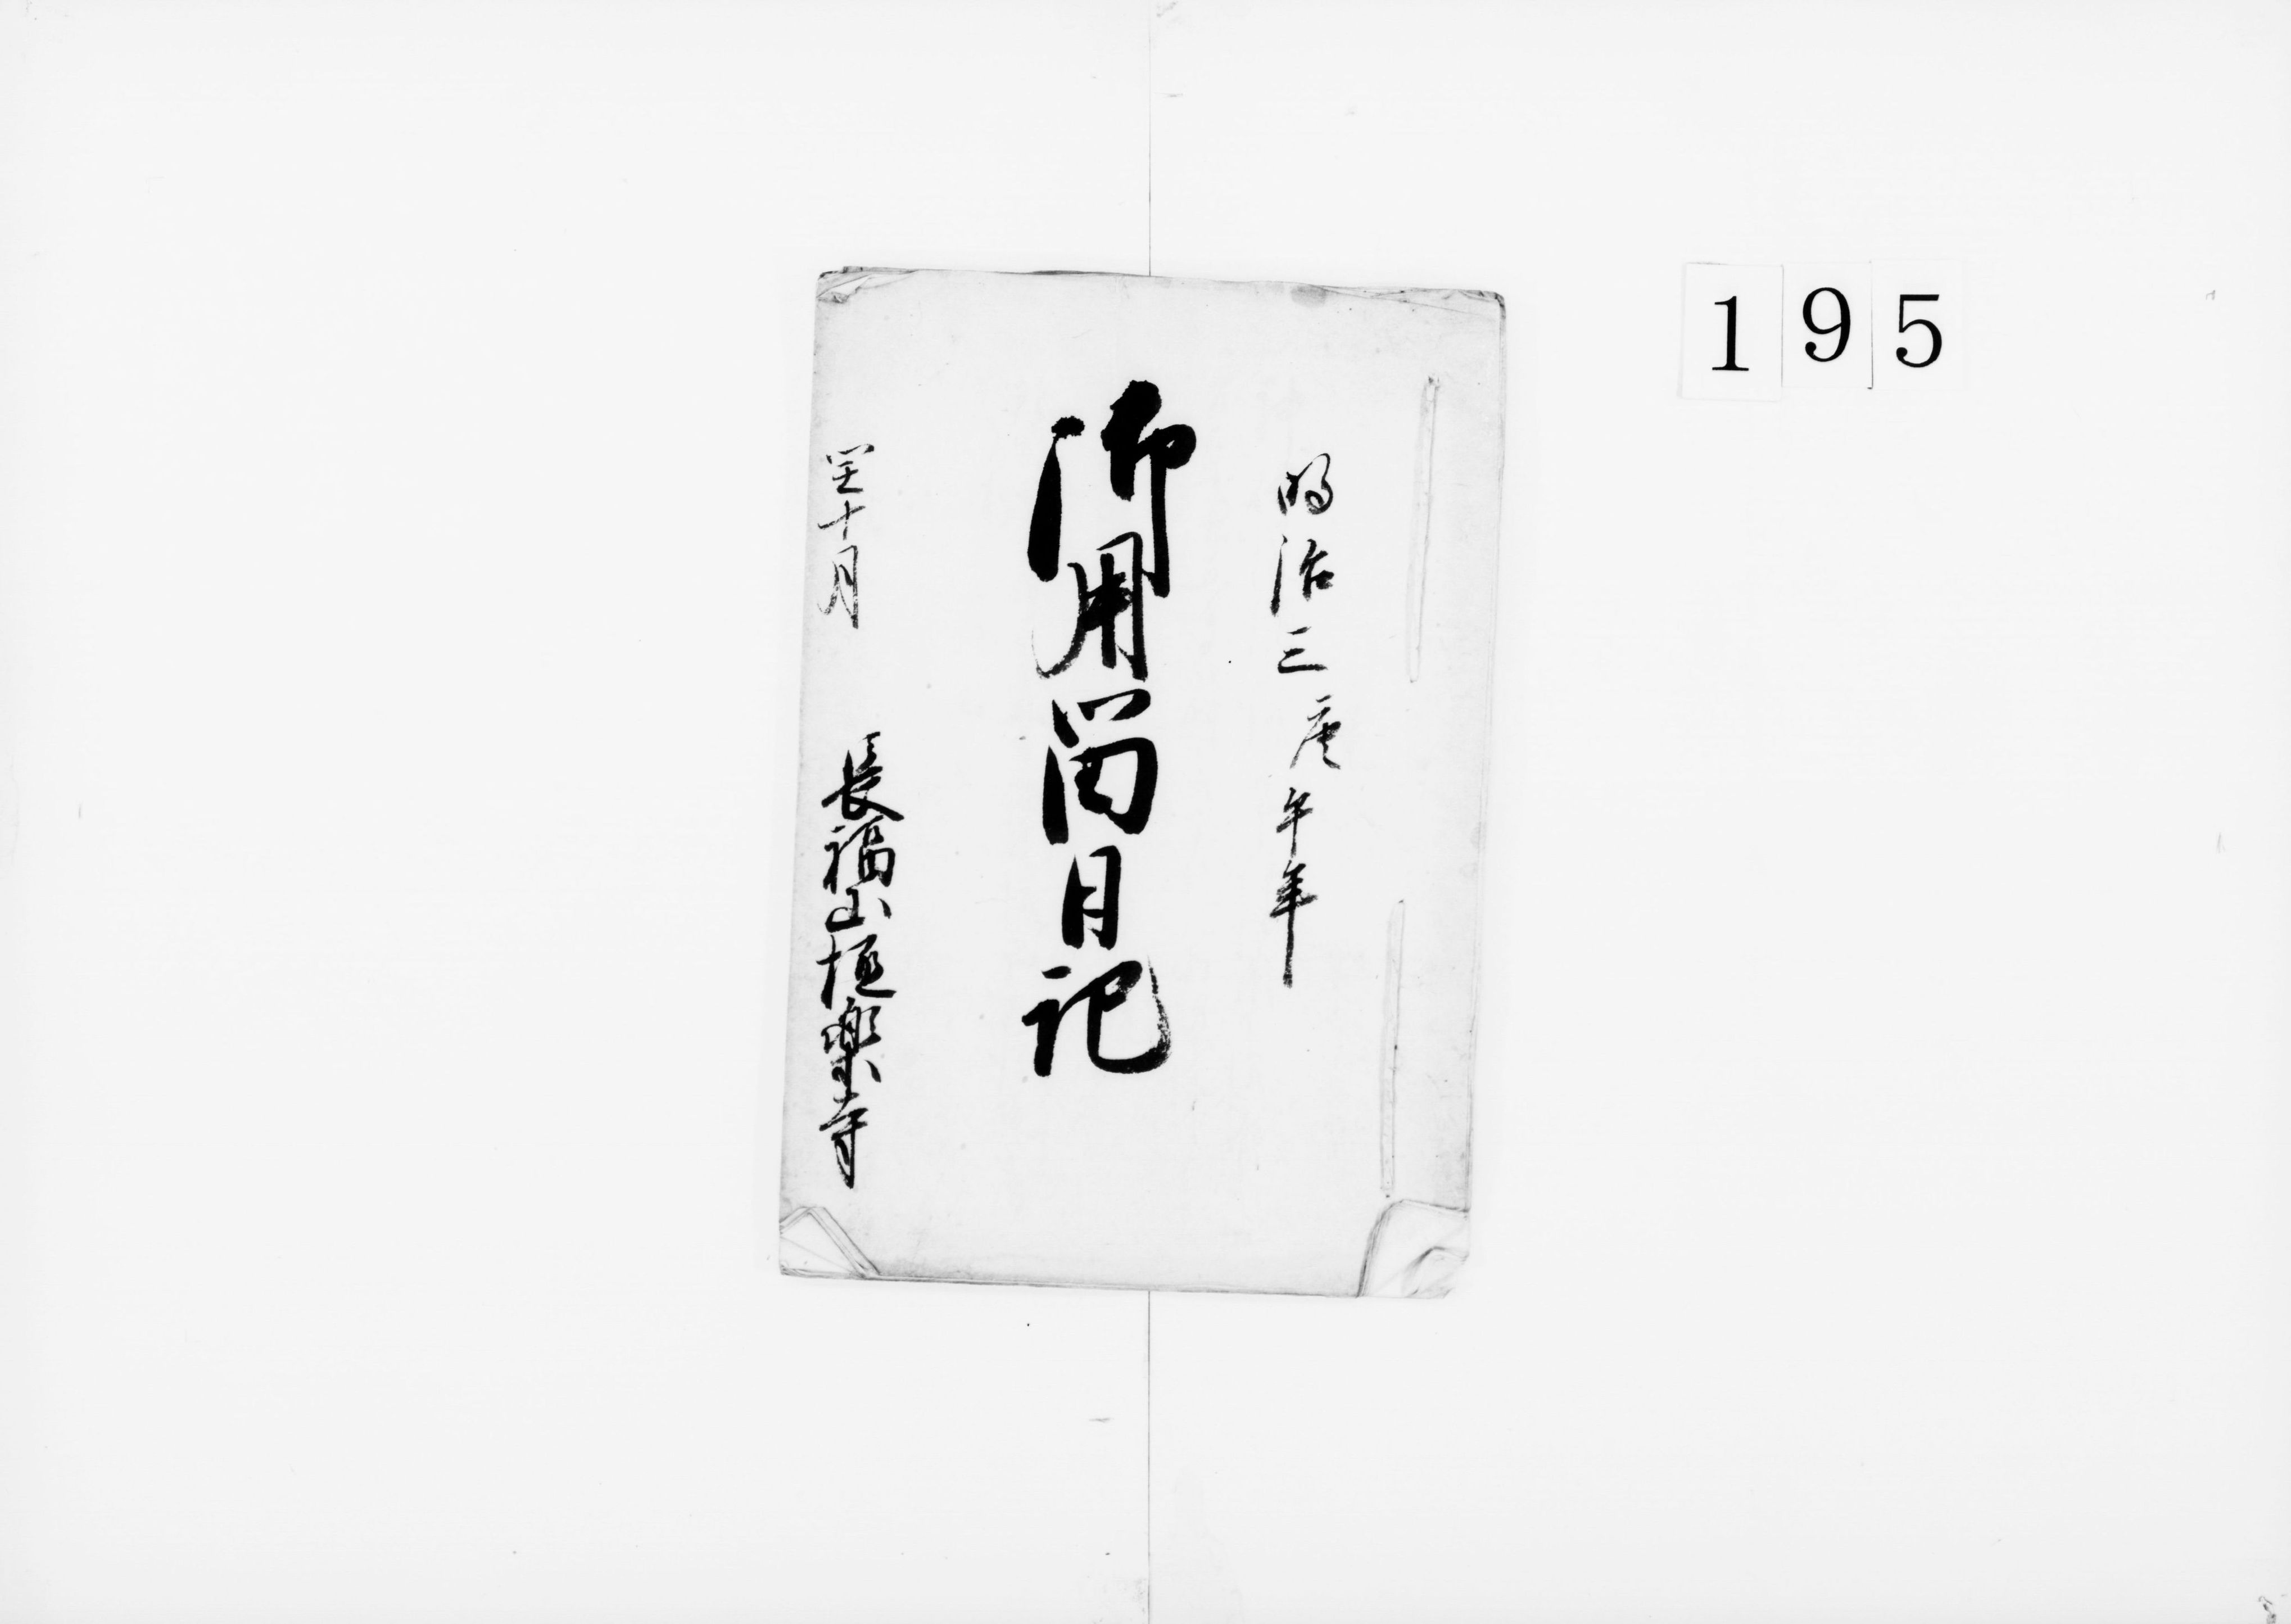 195
明治三庚午年
御用留日記
閏十月
長福山極楽寺